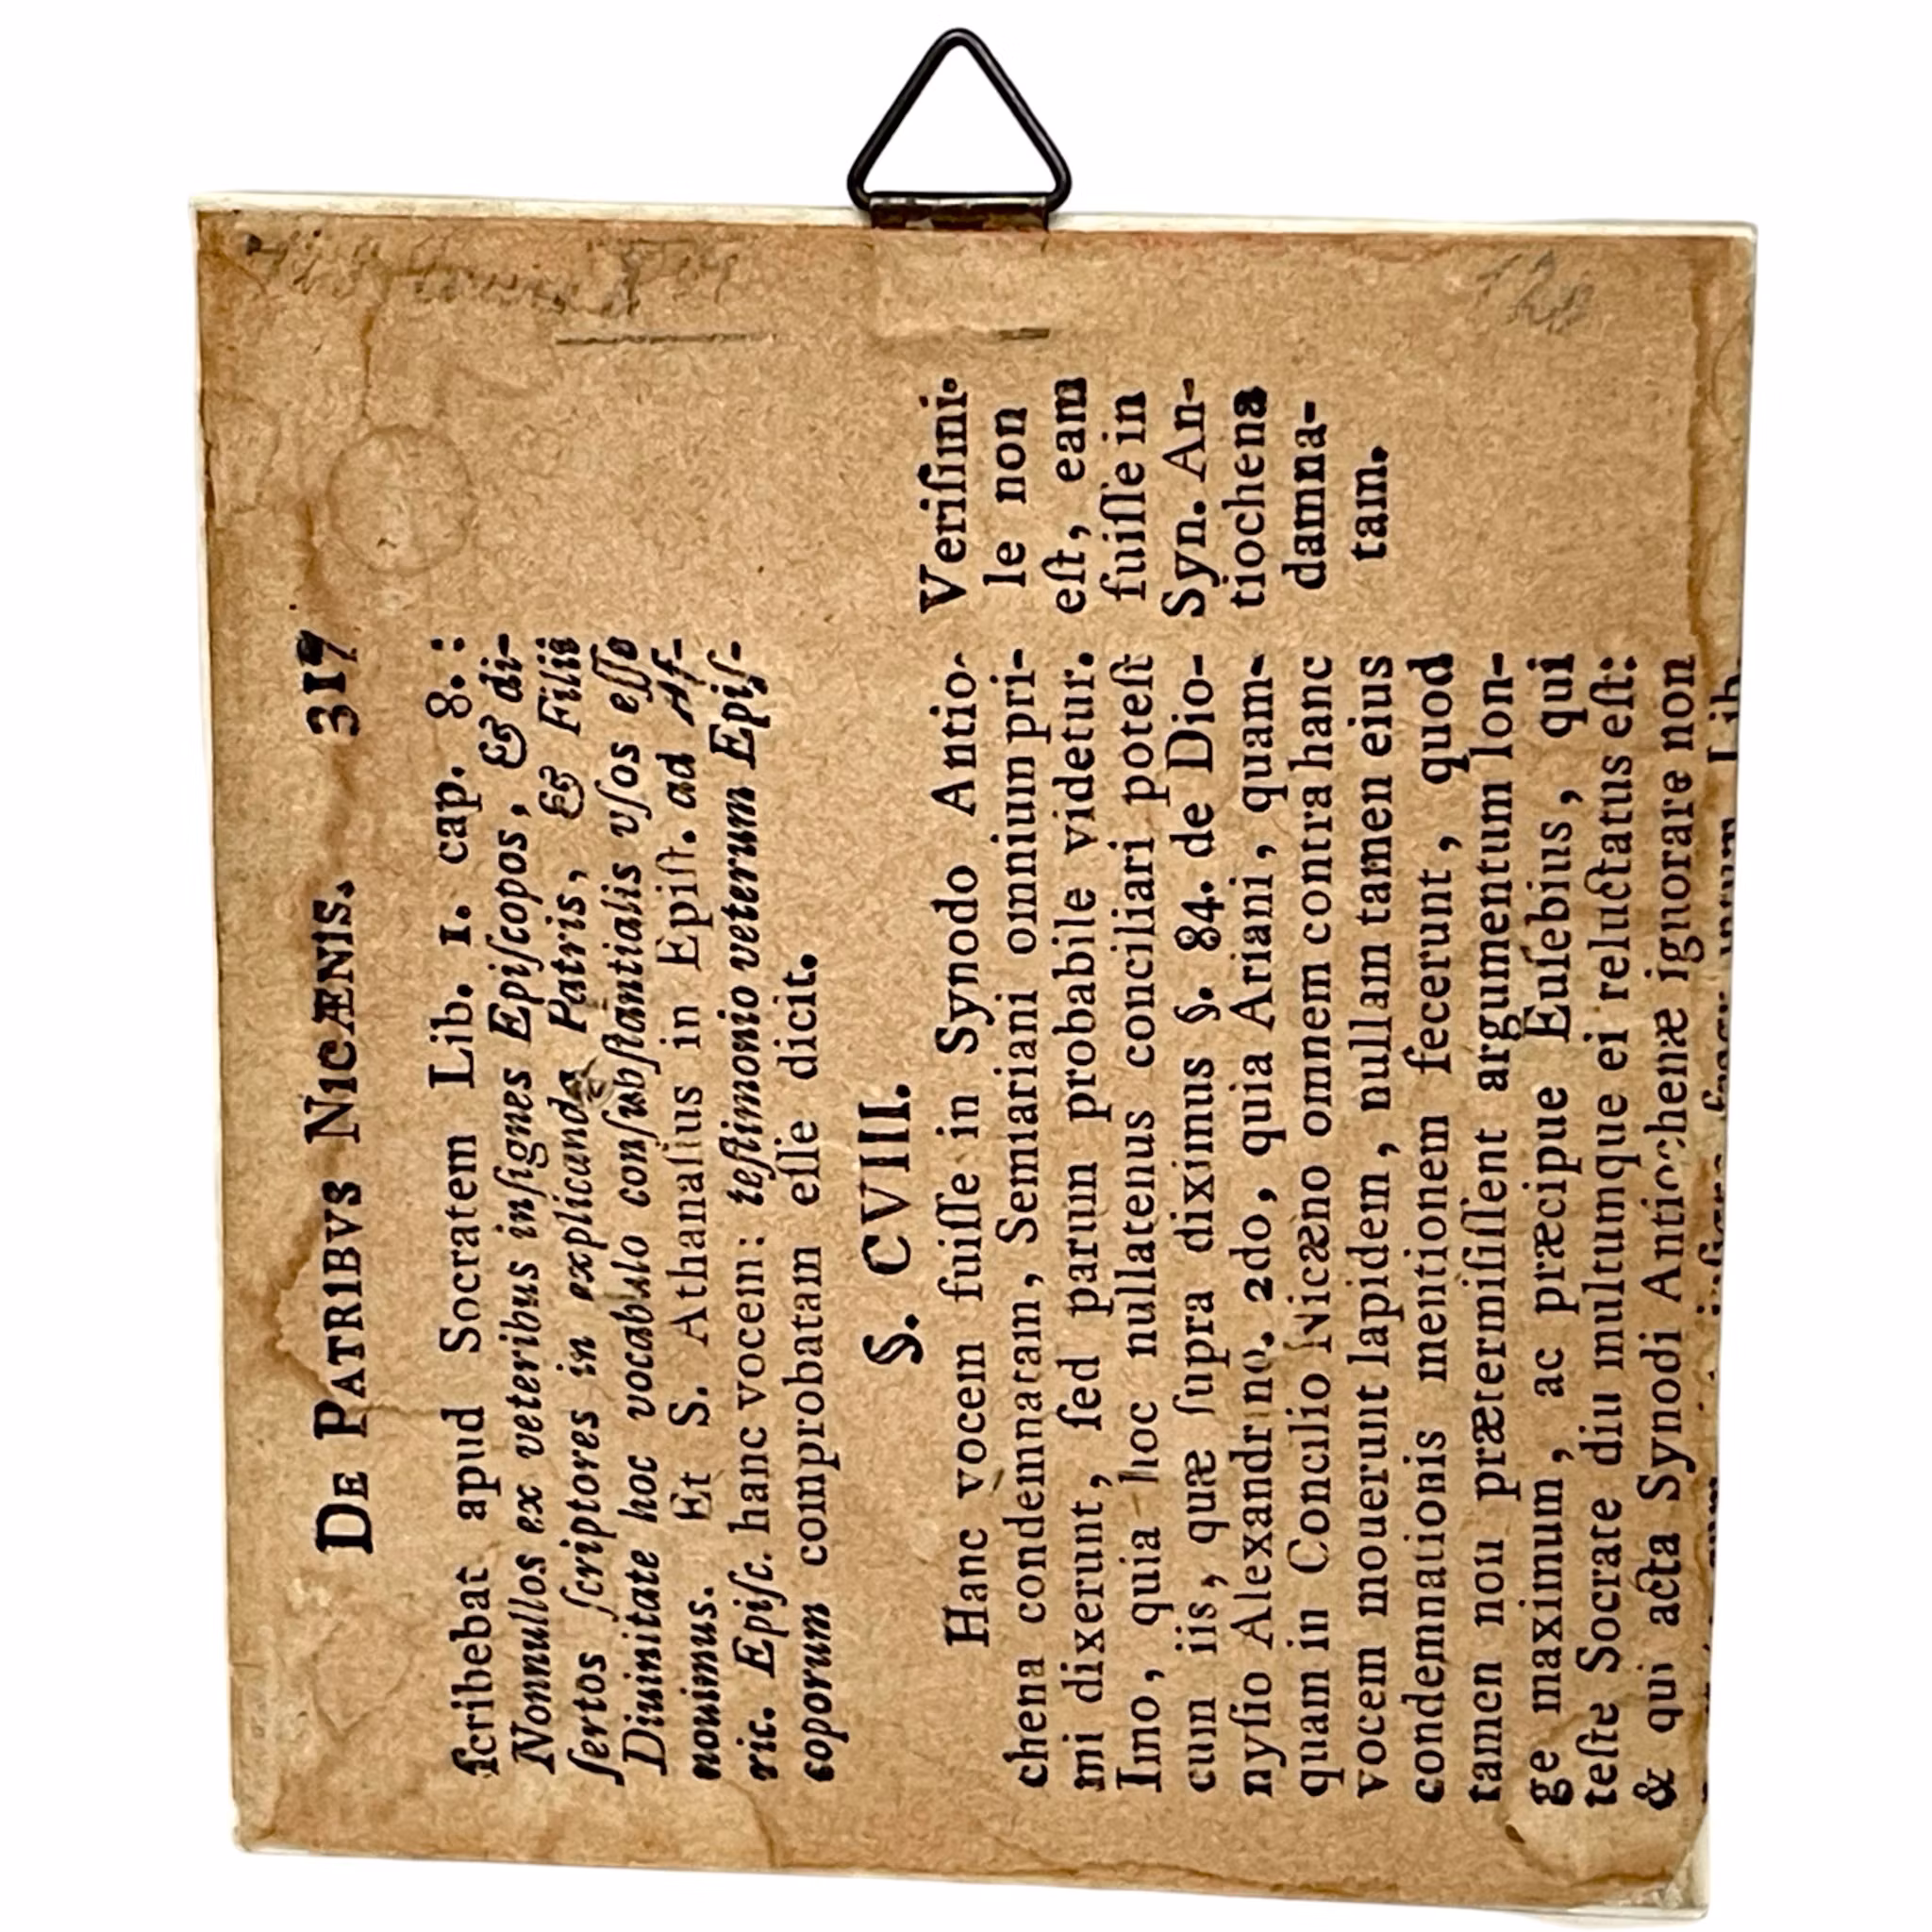 DE PATRIBVS NICÆNIS. 317
ſcribebat apud Socratem Lib. 1. cap. 8.:
Nonnullos ex veteribus inſignes Epiſcopos, & di-
ſertos ſcriptores in explicanda Patris, & Filii
Diuinitate hoc vocabulo conſubſtantialis vſos eſſe
nouimus. Et S. Athanaſius in Epiſt. ad Af-
ric. Epiſc. hanc vocem: teſtimonio veterum Epiſ-
coporum comprobatam eſſe dicit.
§. CVIII.
Hanc vocem fuiſſe in Synodo Antio-
chena condemnatam, Semiariani omnium pri-
mi dixerunt, ſed parum probabile videtur.
Imo, quia hoc nullatenus conciliari poteſt
cum iis, quæ ſupra diximus §. 84. de Dio-
nyſio Alexandrino. 2do, quia Ariani, quam-
quam in Concilio Nicæno omnem contra hanc
vocem mouerunt lapidem, nullam tamen eius
condemnationis mentionem fecerunt, quod
tamen non prætermiſiſſent argumentum lon-
ge maximum, ac præcipue Euſebius, qui
teſte Socrate diu multumque ei reluctatus eſt:
& qui acta Synodi Antiochenæ ignorare non
Veriſimi-
le non
eſt, eam
fuiſſe in
Syn. An-
tiochena
damna-
tam.